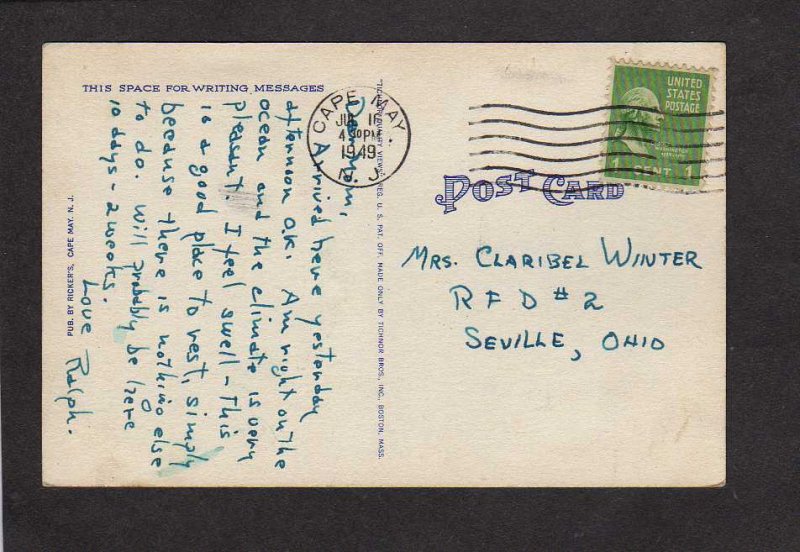 THIS SPACE FOR WRITING MESSAGES
Dear Mom,
Arrived here yesterday
afternoon O.K. Am right on the
ocean and the climate is very
pleasant. I feel swell - This
is a good place to rest, simply
because there is nothing else
to do. Will probably be here
10 days - 2 weeks.
Love Ralph.
PUB. BY RICKER'S, CAPE MAY, N. J.
CAPE MAY.
JUL 16
PM
1949
N. J.
"TICHNOR QUALITY VIEWS," REG. U. S. PAT. OFF. MADE ONLY BY TICHNOR BROS., INC., BOSTON, MASS.
UNITED
STATES
POSTAGE
1 CENT 1
POST CARD
MRS. CLARIBEL WINTER
RFD #2
SEVILLE, OHIO